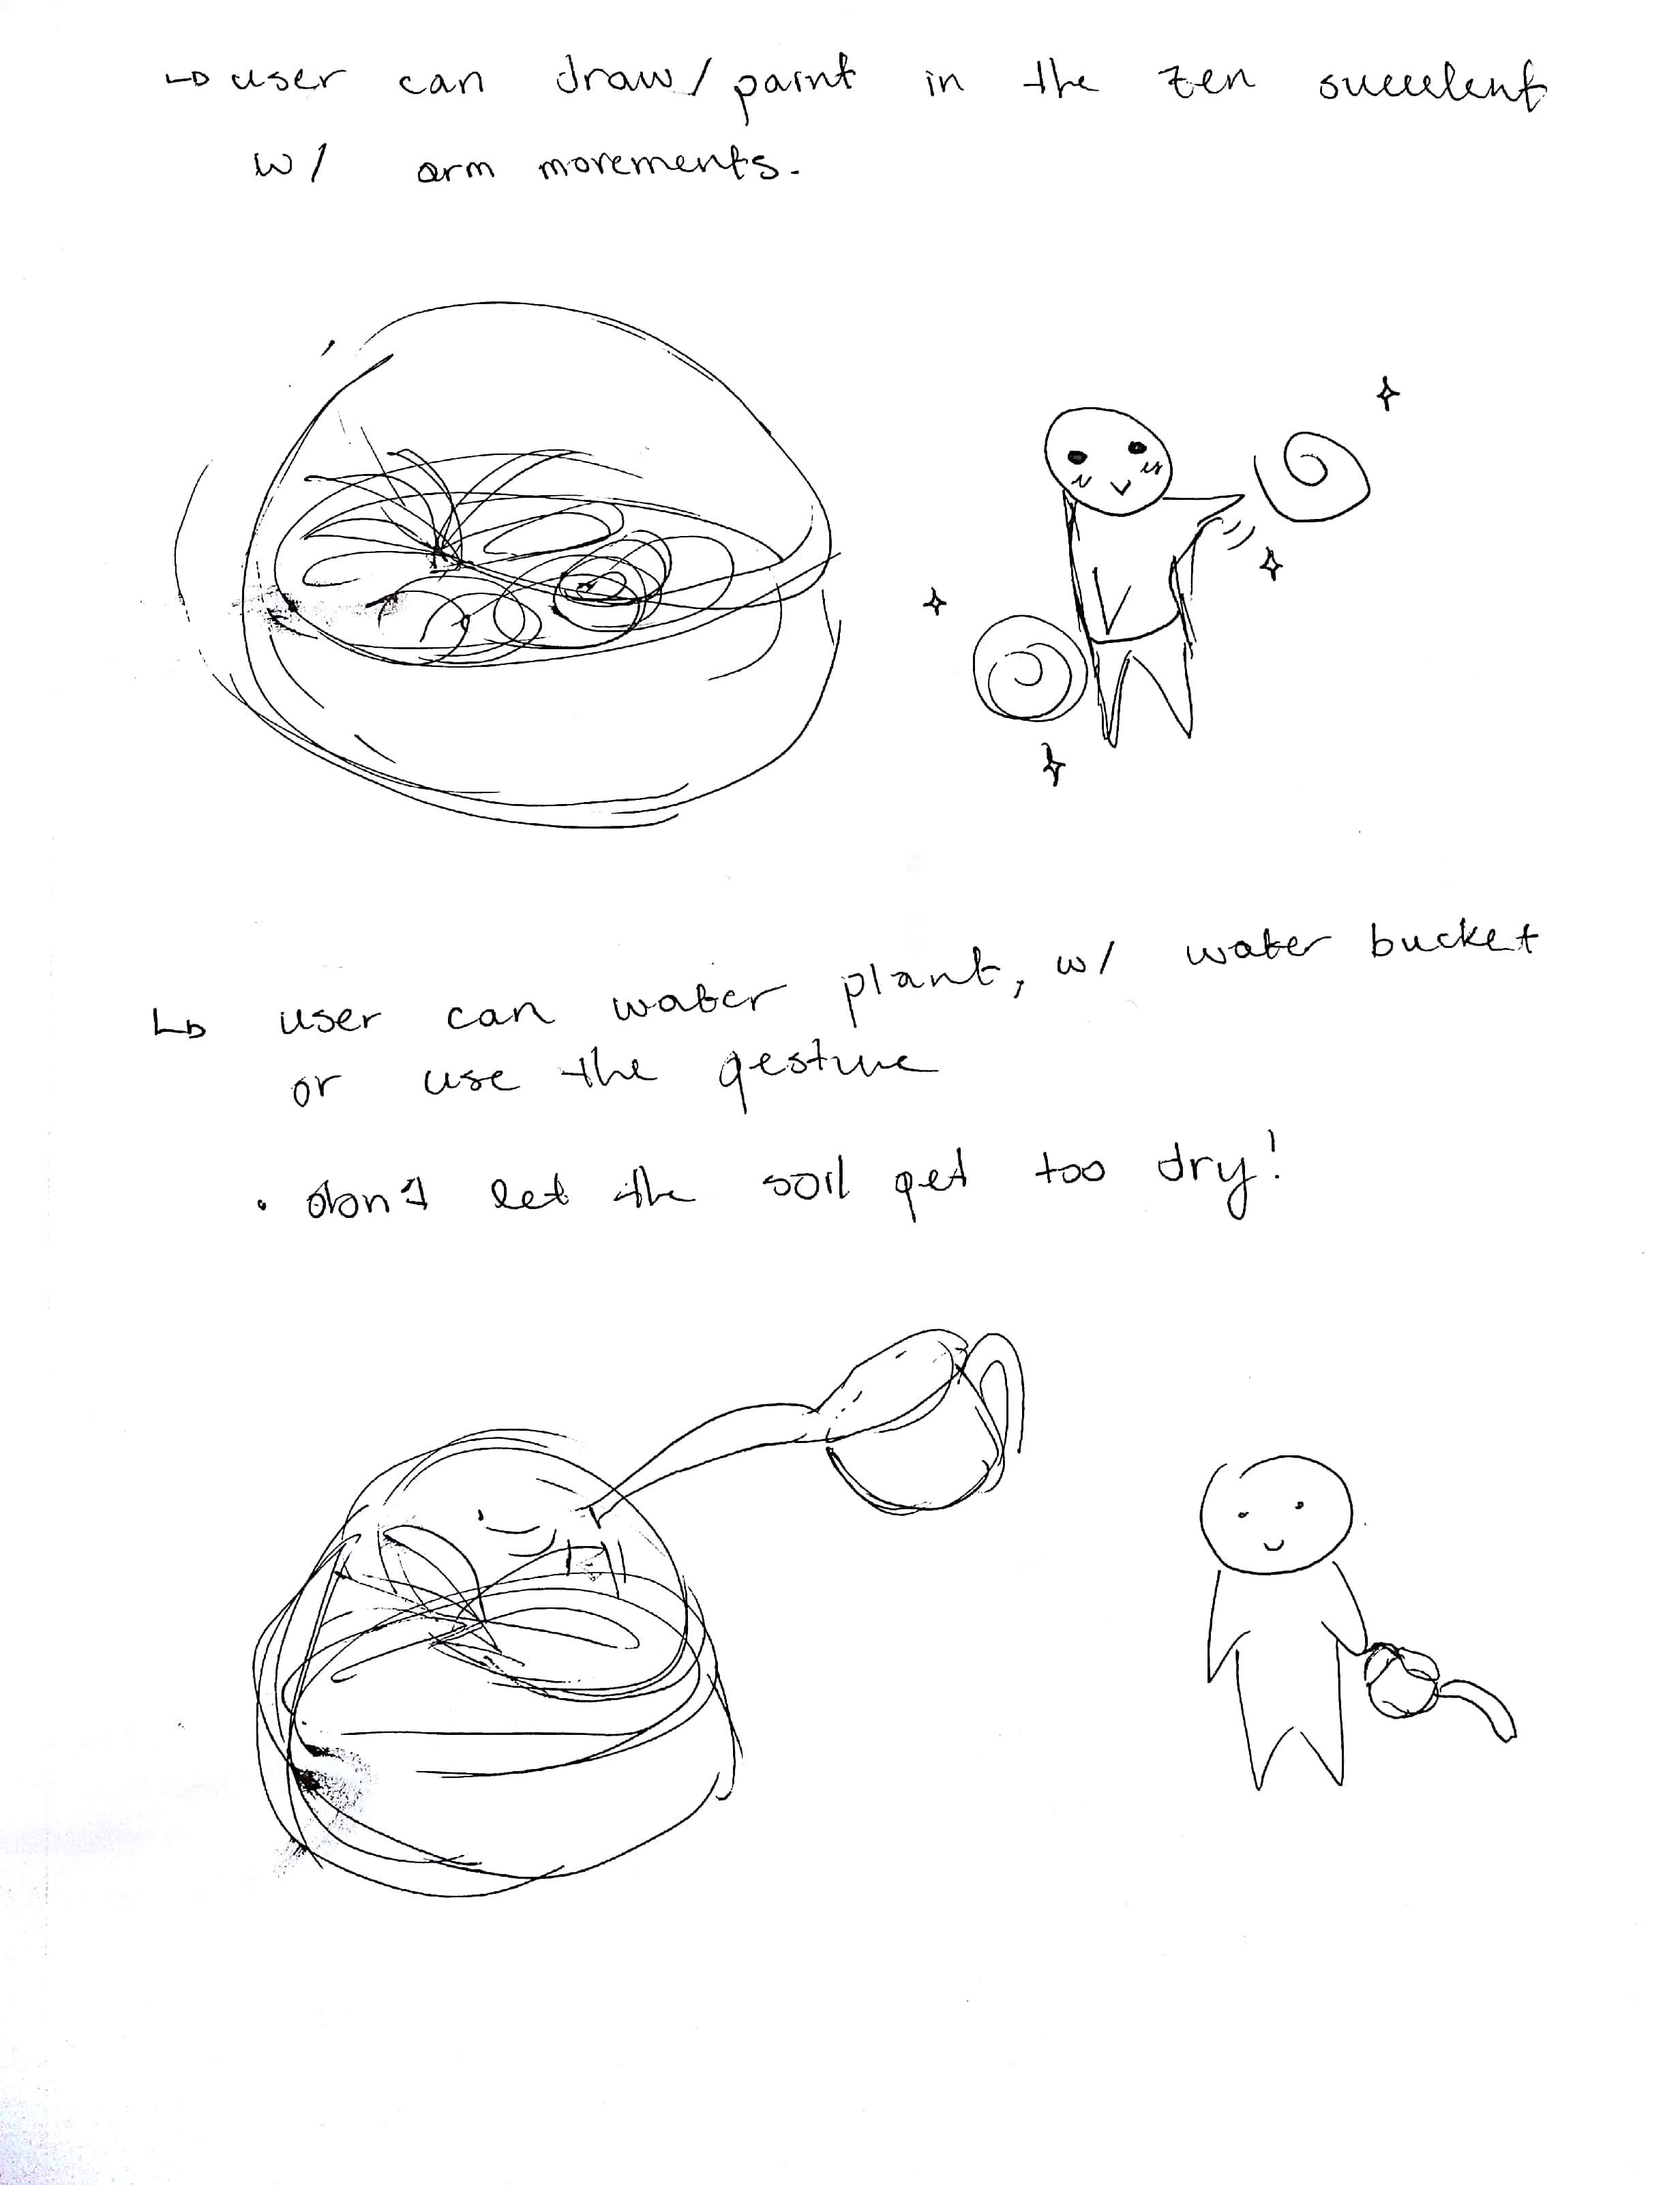 ↳ user can draw/paint in the zen succulent
w/ arm movements.
↳ user can water plant, w/ water bucket
or use the gesture
• don't let the soil get too dry!